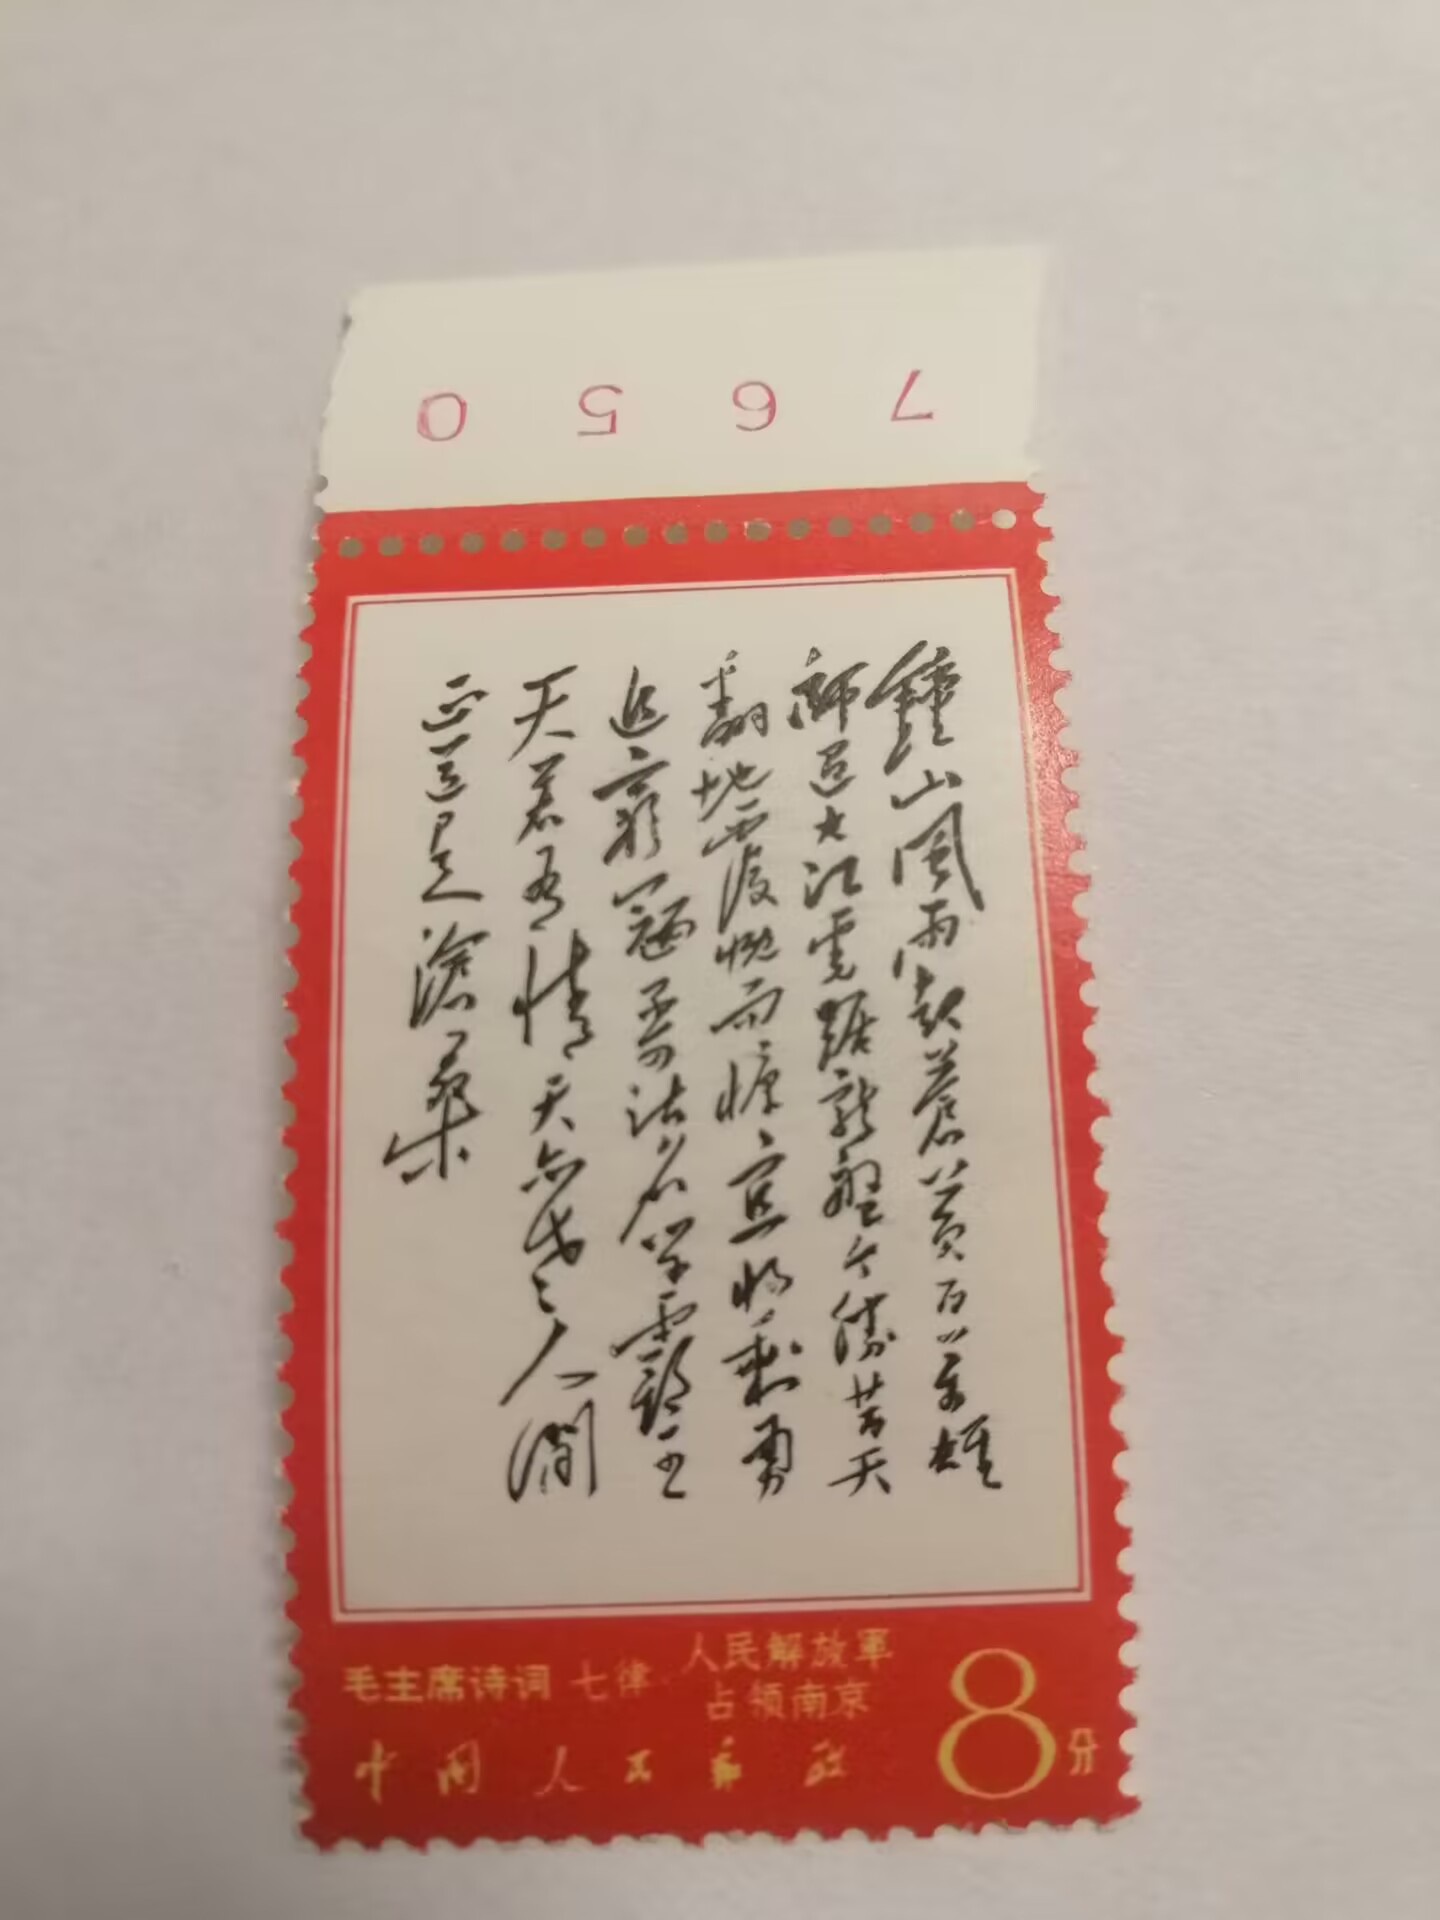 7650
鍾山風雨起蒼黃百萬雄
師過大江虎踞龍盤今勝昔天
翻地覆慨而慷宜將剩勇
追窮寇不可沽名學霸王
天若有情天亦老人間
正道是滄桑
毛主席诗词 七律 人民解放軍
占领南京
中国人民邮政
8分